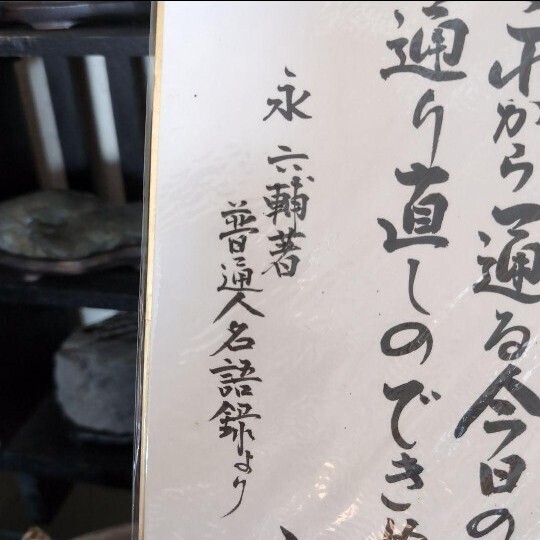 れから通る今日の
通り直しのできぬ
永 六輔著
普通人名語録より